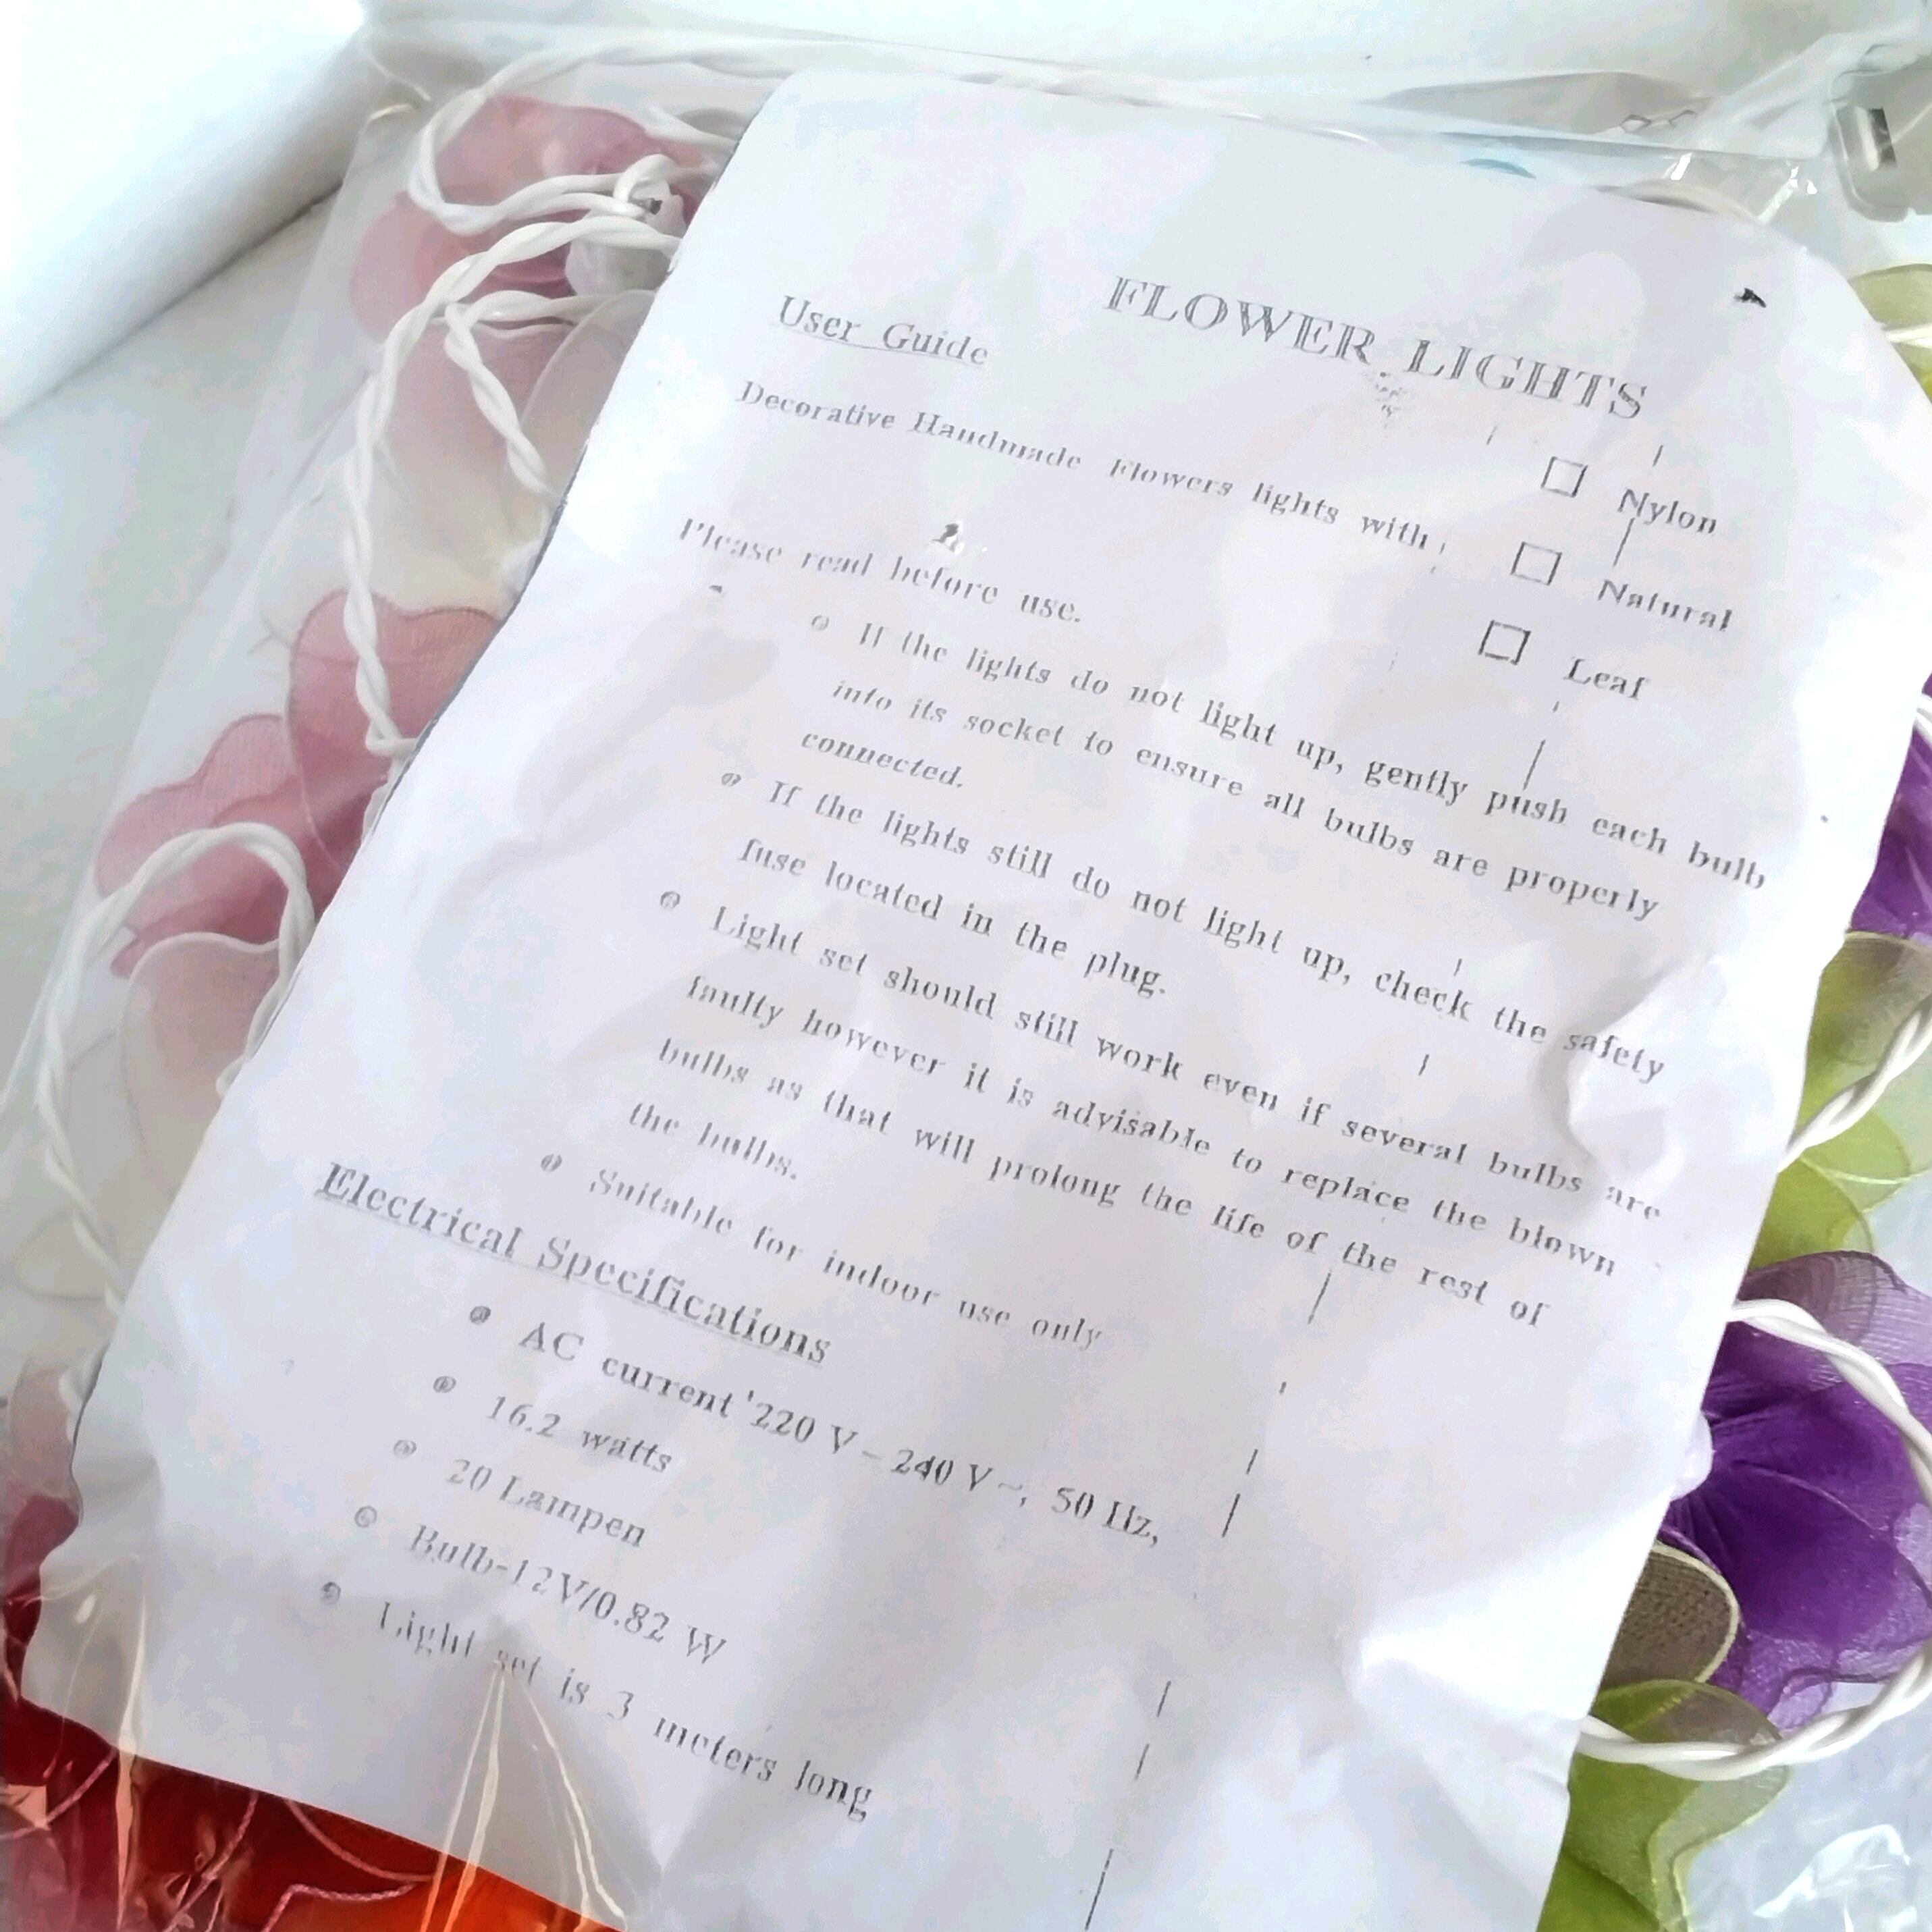 FLOWER LIGHTS
User Guide
Decorative Handmade Flowers lights with
☐ Nylon
☐ Natural
☐ Leaf
Please read before use.
If the lights do not light up, gently push each bulb
into its socket to ensure all bulbs are properly
connected.
If the lights still do not light up, check the safety
fuse located in the plug.
Light set should still work even if several bulbs are
faulty however it is advisable to replace the blown
bulbs as that will prolong the life of the rest of
the bulbs.
Suitable for indoor use only
Electrical Specifications
AC current 220 V – 240 V ~, 50 Hz,
16.2 watts
20 Lampen
Bulb-12V/0.82 W
Light set is 3 meters long